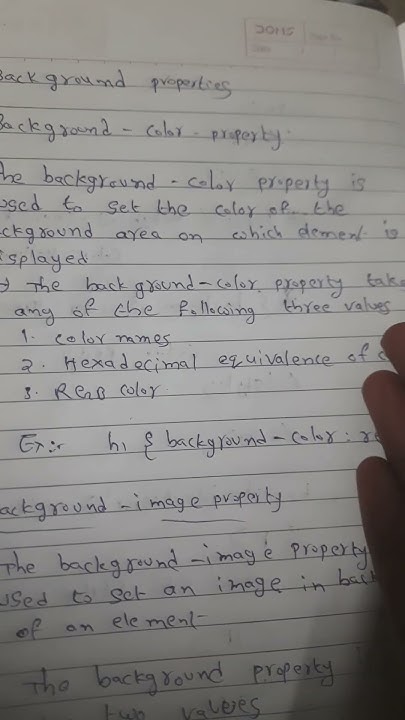 DOMS
ackground properties
ackground - color - property
he background - color property is
used to set the color of the
ckground area on which element is
isplayed
The background-color property take
any of the following three values
1. color names
2. Hexadecimal equivalence of c
3. RGB color
Ex:- h1 { background-color: re
ackground-image property
The background-image property
used to set an image in back
of an element
The background property
two values